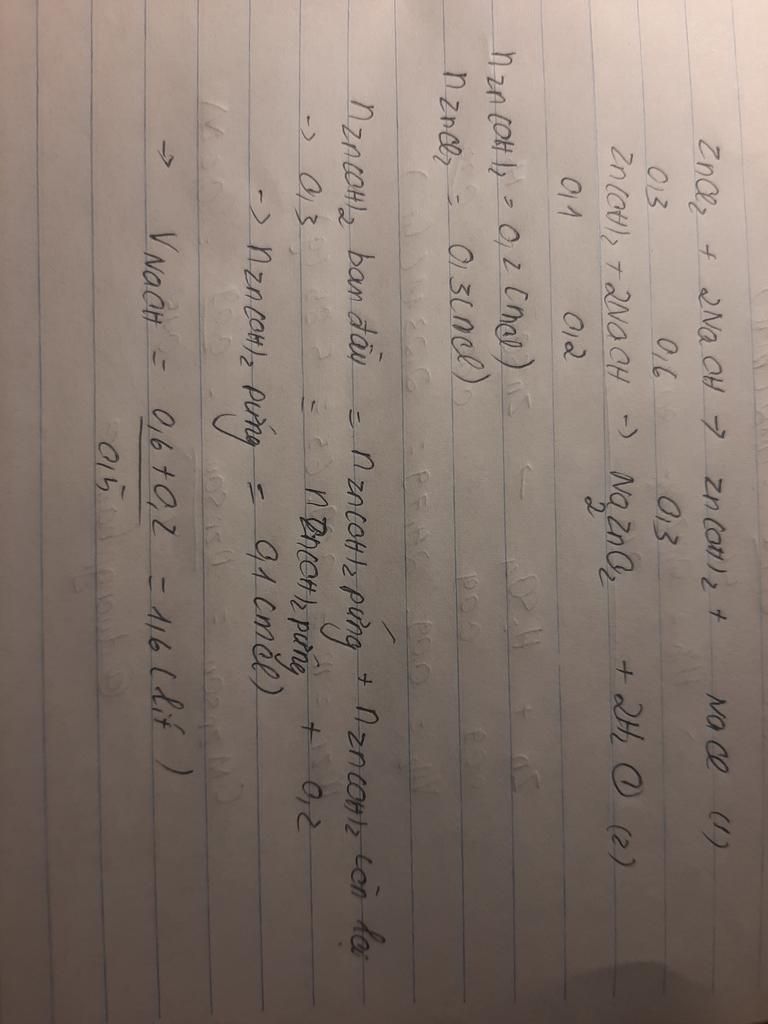 ZnCl₂ + 2NaOH → Zn(OH)₂ + NaCl (1)
0,3 0,6 0,3
Zn(OH)₂ + 2NaOH → Na₂ZnO₂ + 2H₂O (2)
0,1 0,2
nZn(OH)₂ = 0,2 (mol)
nZnCl₂ = 0,3 (mol)
nZn(OH)₂ ban đầu = nZn(OH)₂ pứng + nZn(OH)₂ còn lại
→ 0,3 = nZn(OH)₂ pứng + 0,2
→ nZn(OH)₂ pứng = 0,1 (mol)
→ VNaOH = 0,6 + 0,2 = 1,6 (lít)
0,5